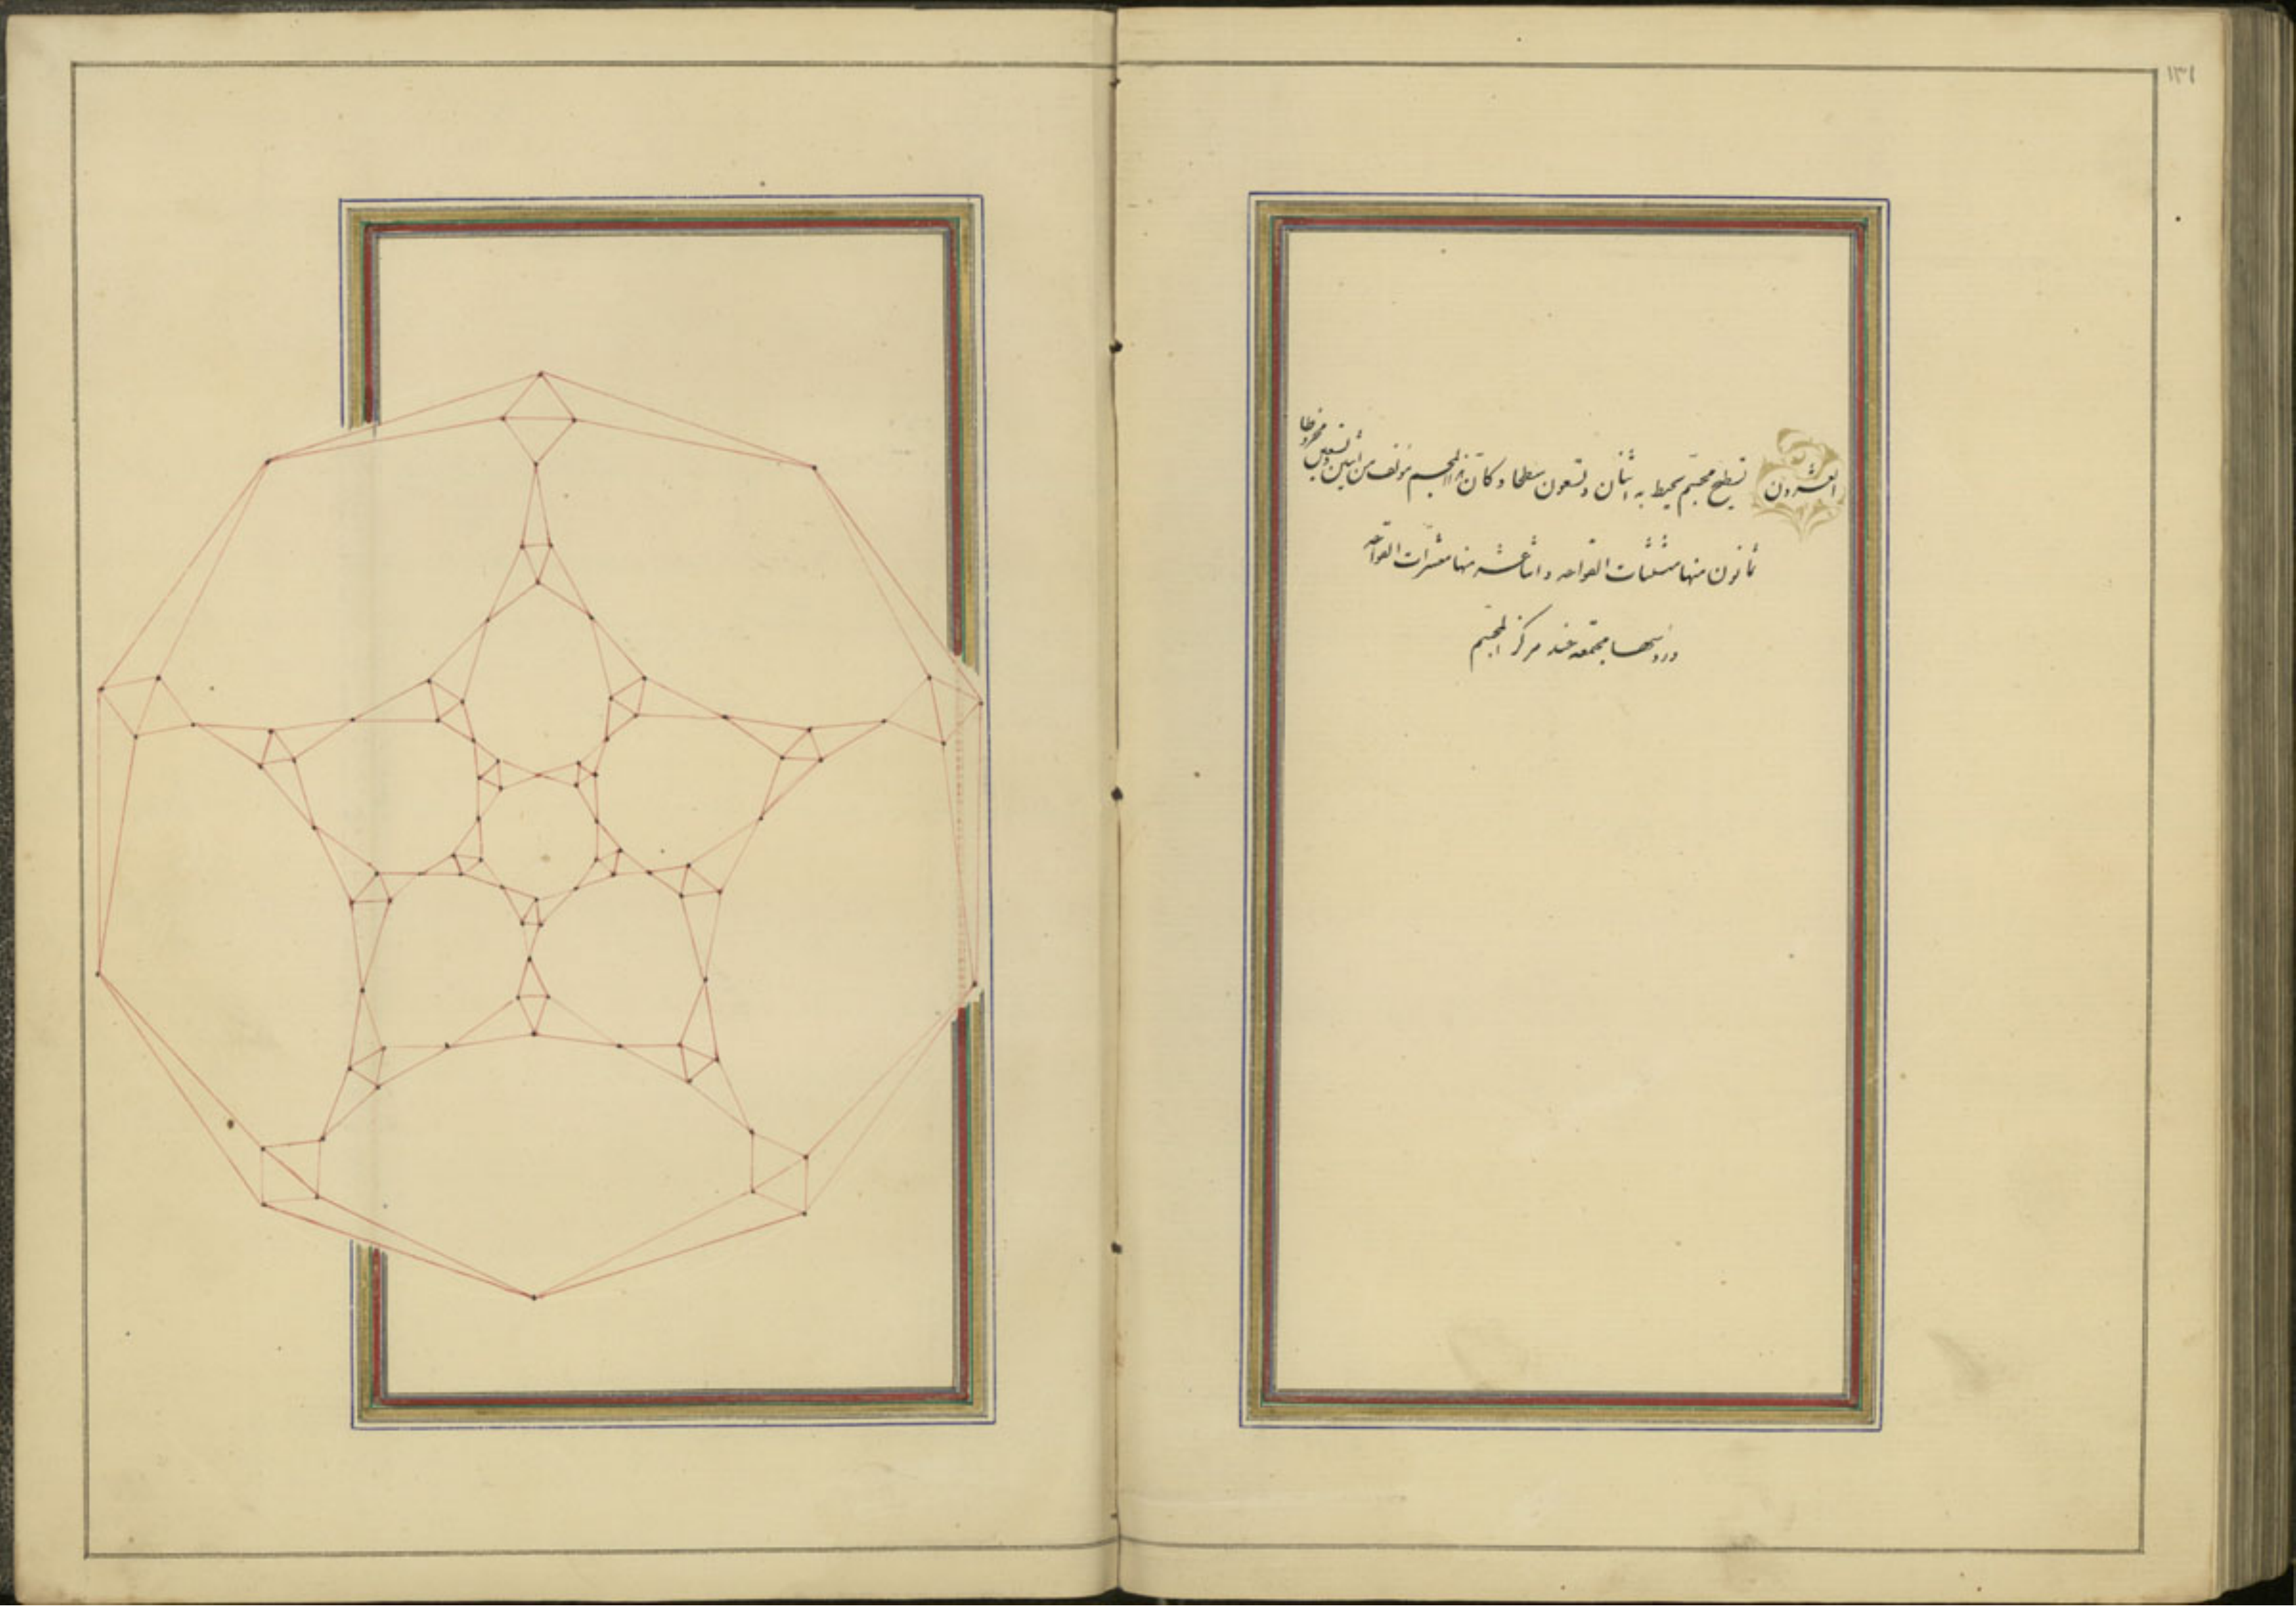 ١٣١
العشرون تسطيح مجسّم يحيط به اثنان وتسعون سطحا وكأنّ هذا المجسم مؤلف من اثنين وتسعين مخروطا
ثمانون منها مثلثات القواعد واثنا عشر منها معشرات القواعد
ورؤسها مجتمعة عند مركز المجسّم